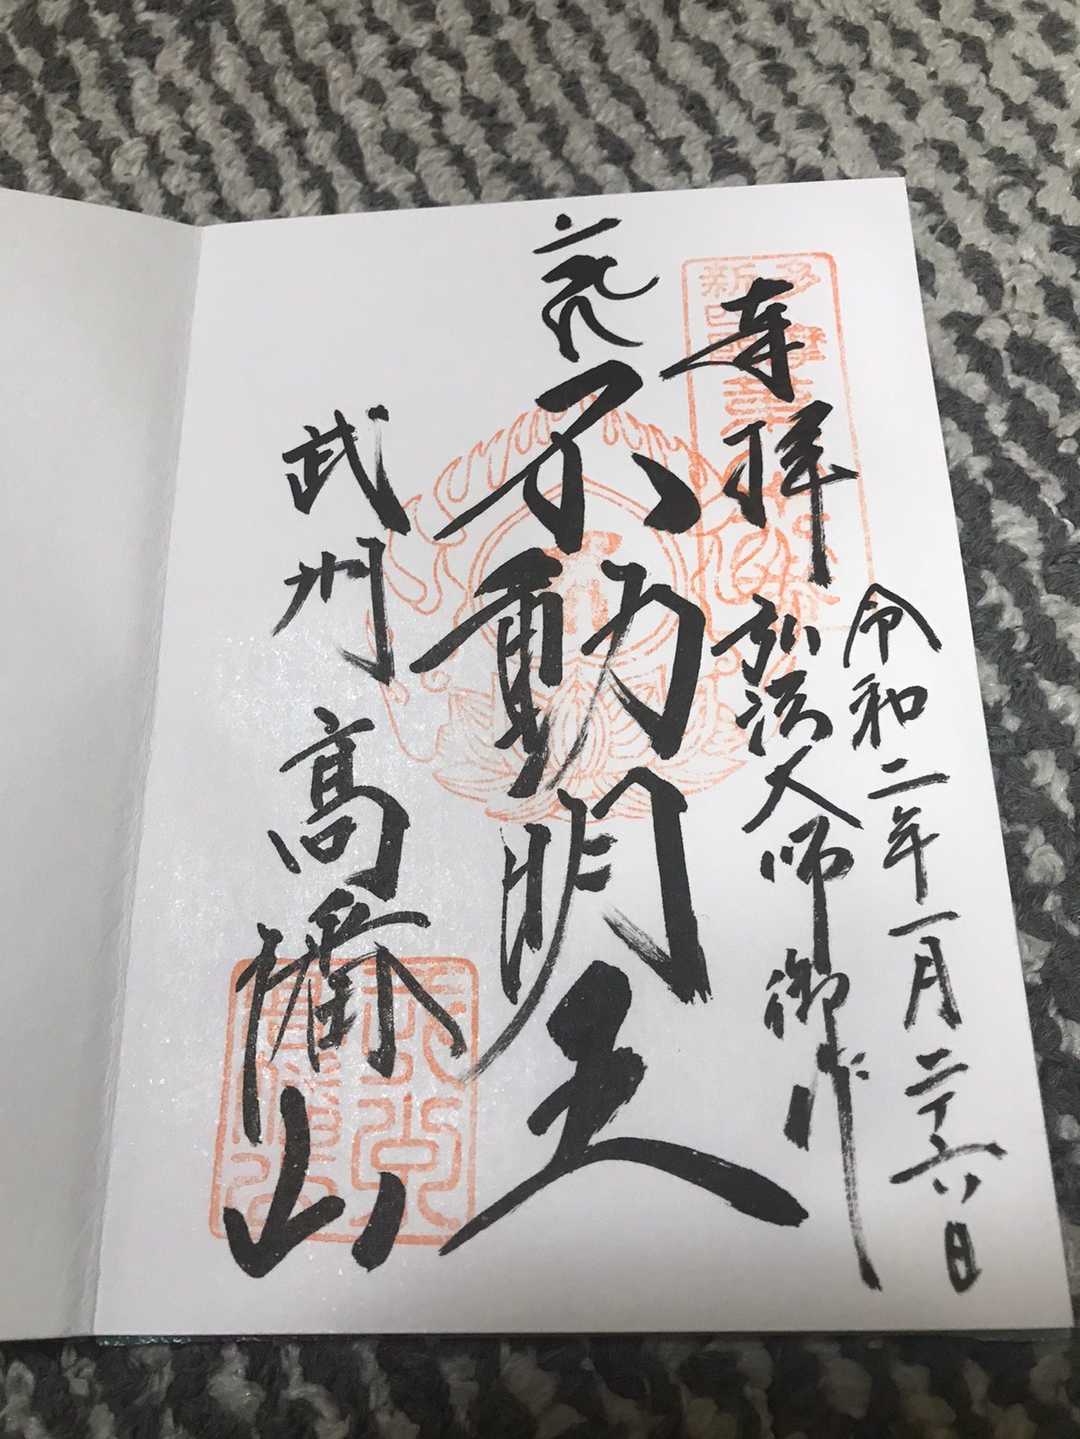 令和二年一月二十六日
奉拝 弘法大師御作
不動明王
武州 高幡山
多摩
新四国